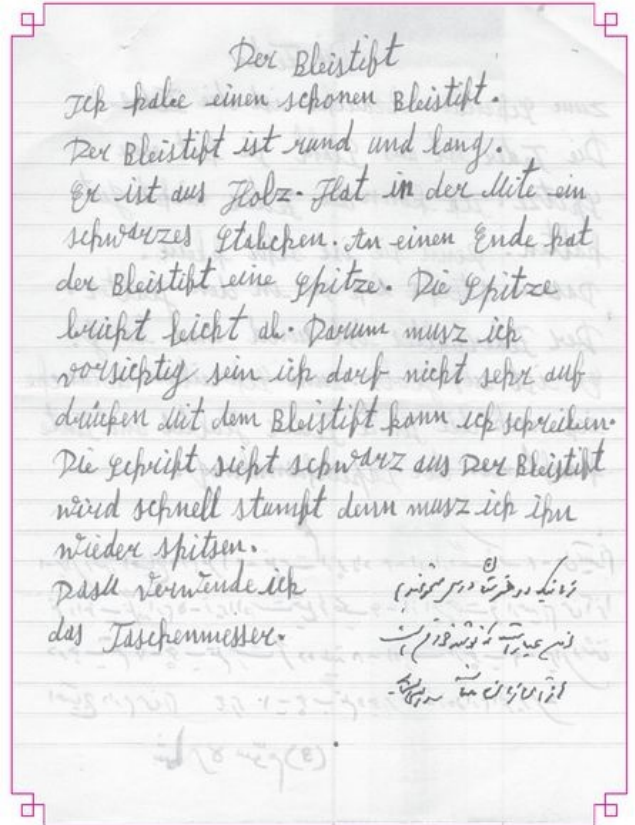 Der Bleistift
Ich habe einen schonen Bleistift.
Der Bleistift ist rund und lang.
Er ist aus Holz. Hat in der Mite ein
schwarzes Stabchen. An einen Ende hat
der Bleistift eine Spitze. Die Spitze
bricht leicht ab. Darum musz ich
vorsichtig sein ich darf nicht sehr auf
drücken Mit dem Bleistift kann ich schreiben.
Die Schrift sieht schwarz aus Der Bleistift
wird schnell stumpf denn musz ich ihn
wieder spitsen.
Dasu Verwende ich
das Taschenmesser.